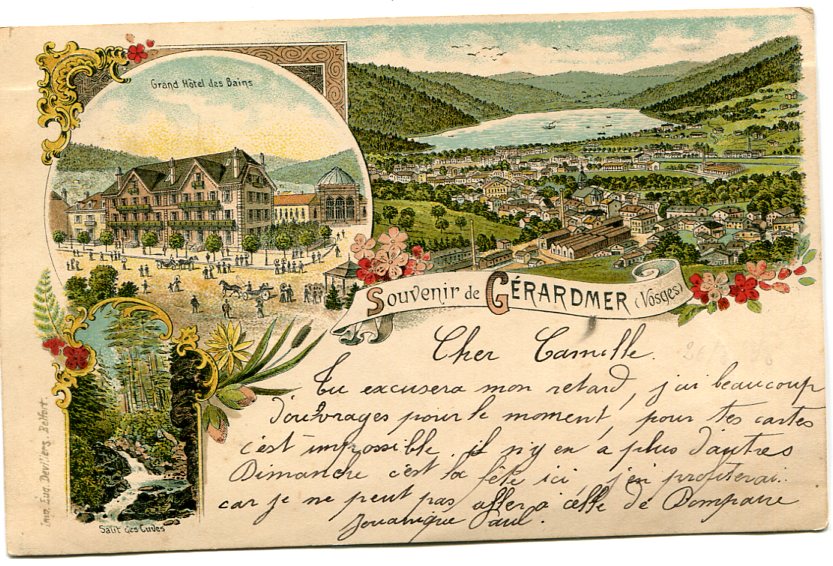 Grand Hôtel des Bains
Souvenir de GÉRARDMER (Vosges)
Cher Camille.
Tu excusera mon retard, j'ai beaucoup
d'ouvrages pour le moment, pour tes cartes
c'est impossible. il n'y en a plus d'autres
Dimanche c'est la fête ici j'en profiterai.
car je ne peut pas aller a celle de Dompaire
Paul.
Imp. Eug. Devillers, Belfort.
Saut des Cuves